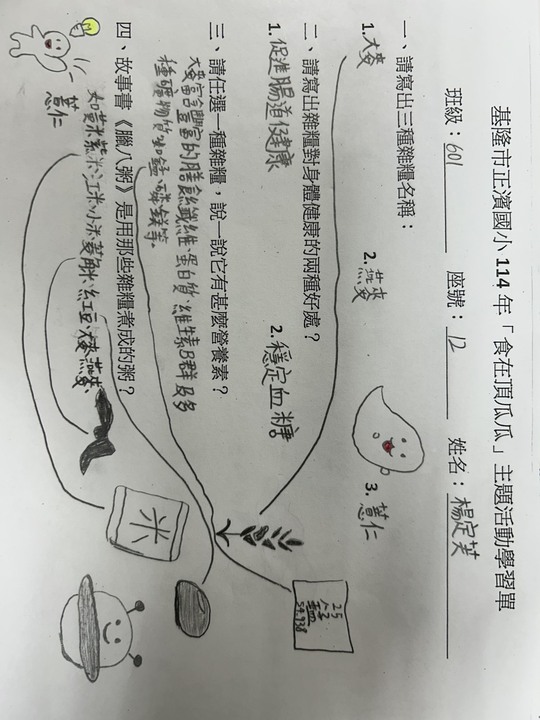 基隆市正濱國小 114 年「食在頂瓜瓜」主題活動學習單
班級：601 座號：12 姓名：楊定芙
一、請寫出三種雜糧名稱：
1. 大麥 2. 燕麥 3. 薏仁
二、請寫出雜糧對身體健康的兩種好處？
1. 促進腸道健康 2. 穩定血糖
三、請任選一種雜糧，說一說它有甚麼營養素？
大麥富含豐富的膳食纖維、蛋白質、維生素B群及多
種礦物質如錳、磷、鎂等。
四、故事書《臘八粥》是用那些雜糧煮成的粥？
紫米、江米、小米、菱角米、紅豆、大麥、燕麥、
薏仁
米
25
錳
54.938